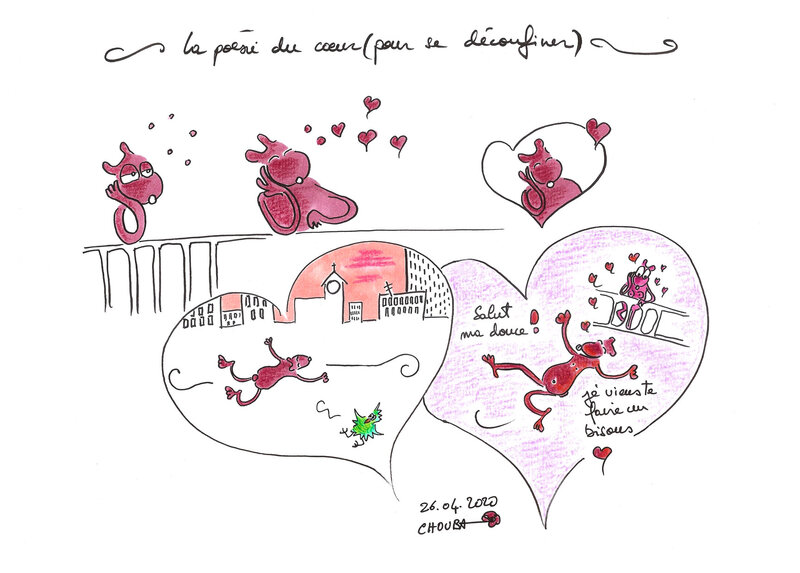 La poésie du cœur (pour se déconfiner)
Salut
ma douce !
je viens te
faire un
bisous
26.04.2020
CHOUBA